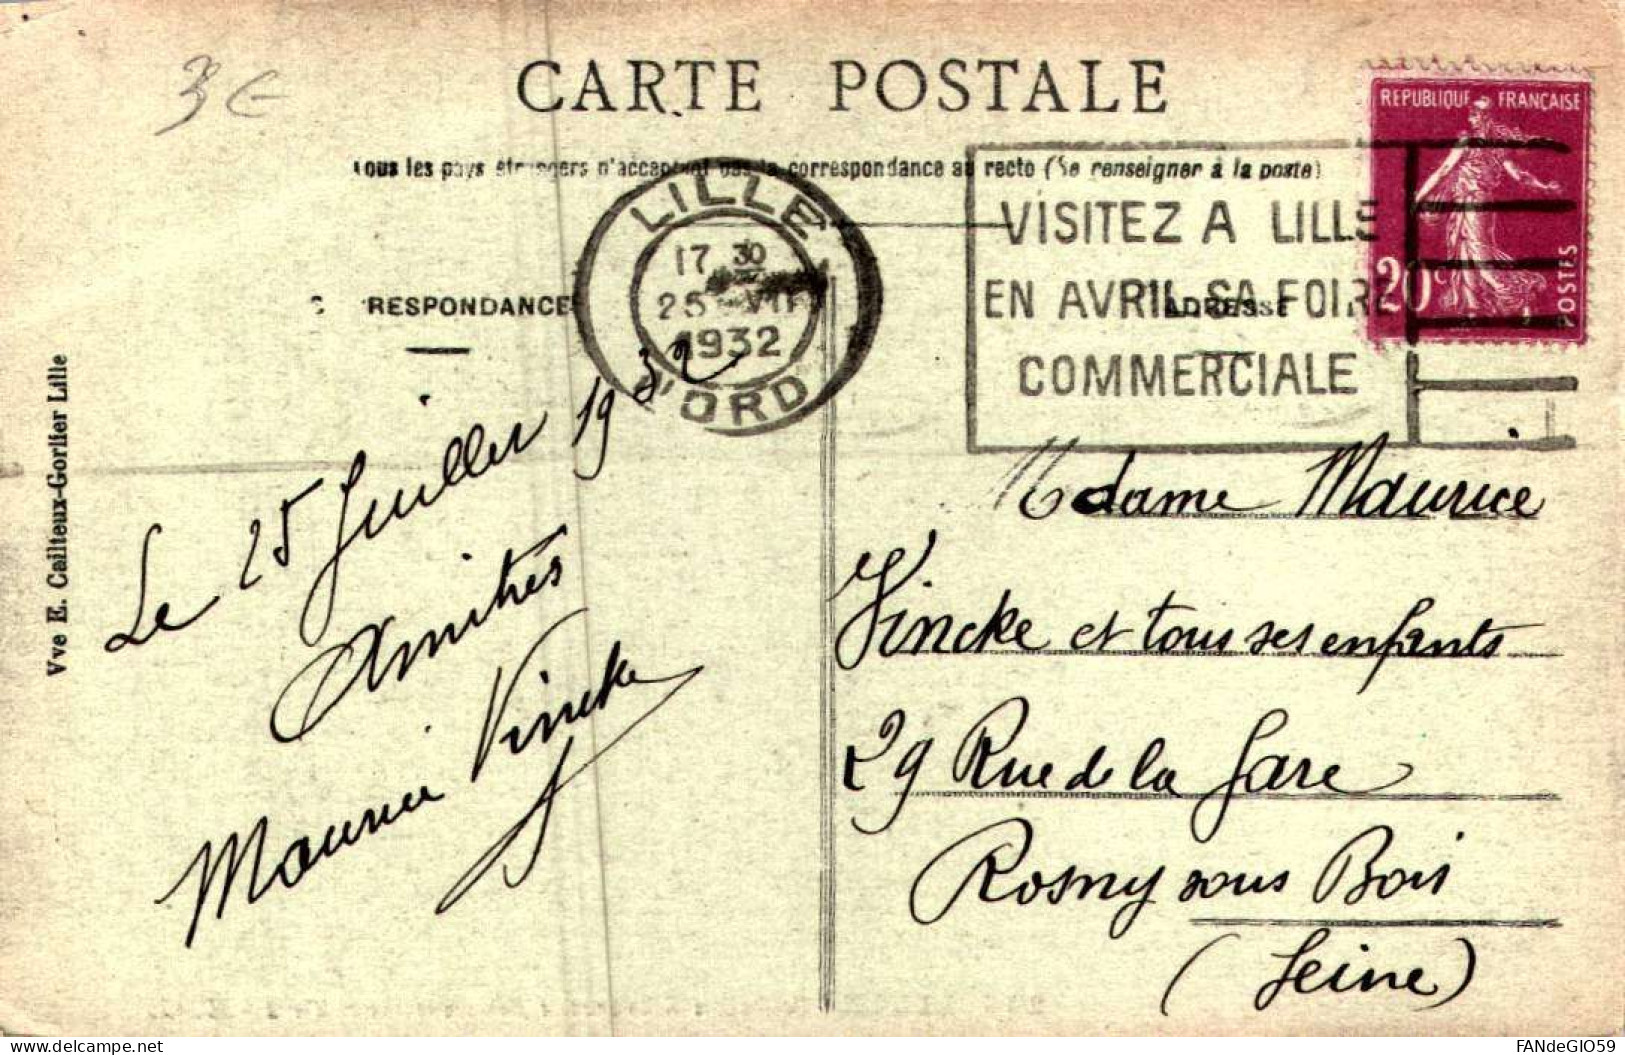 3 €
CARTE POSTALE
Tous les pays étrangers n'acceptent pas la correspondance au recto (Se renseigner à la poste)
REPUBLIQUE FRANÇAISE
20c
POSTES
LILLE
17 30
25 VII
1932
NORD
VISITEZ A LILLE
EN AVRIL SA FOIRE
COMMERCIALE
RESPONDANCE
ADRESSE
Vve E. Cailteux-Gorlier Lille
Le 25 Juillet 1932
Amitiés
Maurice Vincke
Madame Maurice
Vincke et tous ses enfants
29 Rue de la Gare
Rosny sous Bois
(Seine)
delcampe.net
FANdeGIO59